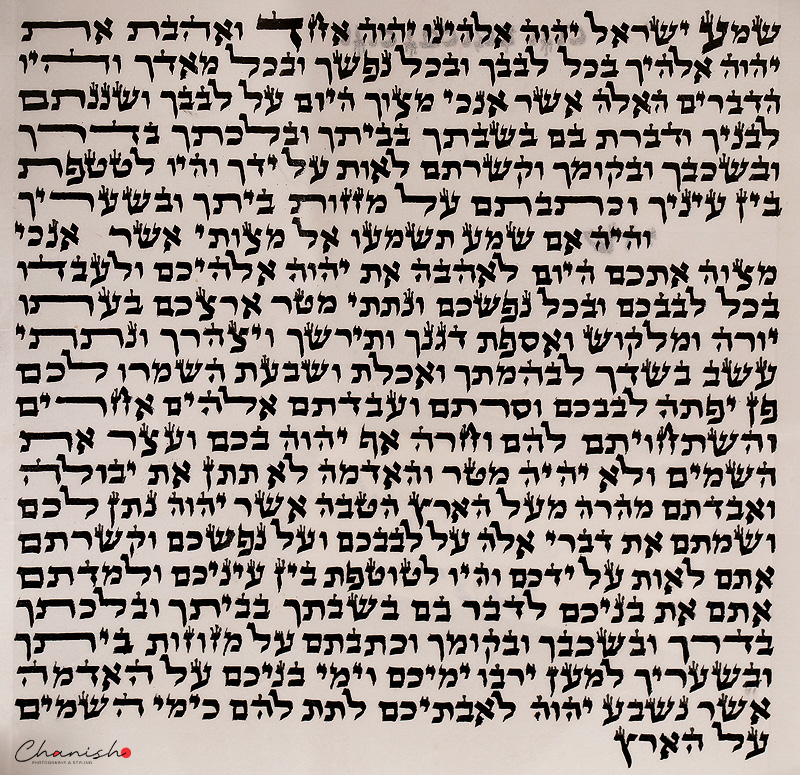 שמע ישראל יהוה אלהינו יהוה אחד ואהבת את
יהוה אלהיך בכל לבבך ובכל נפשך ובכל מאדך והיו
הדברים האלה אשר אנכי מצוך היום על לבבך ושננתם
לבניך ודברת בם בשבתך בביתך ובלכתך בדרך
ובשכבך ובקומך וקשרתם לאות על ידך והיו לטטפת
בין עיניך וכתבתם על מזזות ביתך ובשעריך
והיה אם שמע תשמעו אל מצותי אשר אנכי
מצוה אתכם היום לאהבה את יהוה אלהיכם ולעבדו
בכל לבבכם ובכל נפשכם ונתתי מטר ארצכם בעתו
יורה ומלקוש ואספת דגנך ותירשך ויצהרך ונתתי
עשב בשדך לבהמתך ואכלת ושבעת השמרו לכם
פן יפתה לבבכם וסרתם ועבדתם אלהים אחרים
והשתחויתם להם וחרה אף יהוה בכם ועצר את
השמים ולא יהיה מטר והאדמה לא תתן את יבולה
ואבדתם מהרה מעל הארץ הטבה אשר יהוה נתן לכם
ושמתם את דברי אלה על לבבכם ועל נפשכם וקשרתם
אתם לאות על ידכם והיו לטוטפת בין עיניכם ולמדתם
אתם את בניכם לדבר בם בשבתך בביתך ובלכתך
בדרך ובשכבך ובקומך וכתבתם על מזוזות ביתך
ובשעריך למען ירבו ימיכם וימי בניכם על האדמה
אשר נשבע יהוה לאבתיכם לתת להם כימי השמים
על הארץ
Chanish
PHOTOGRAPHY & STYLING